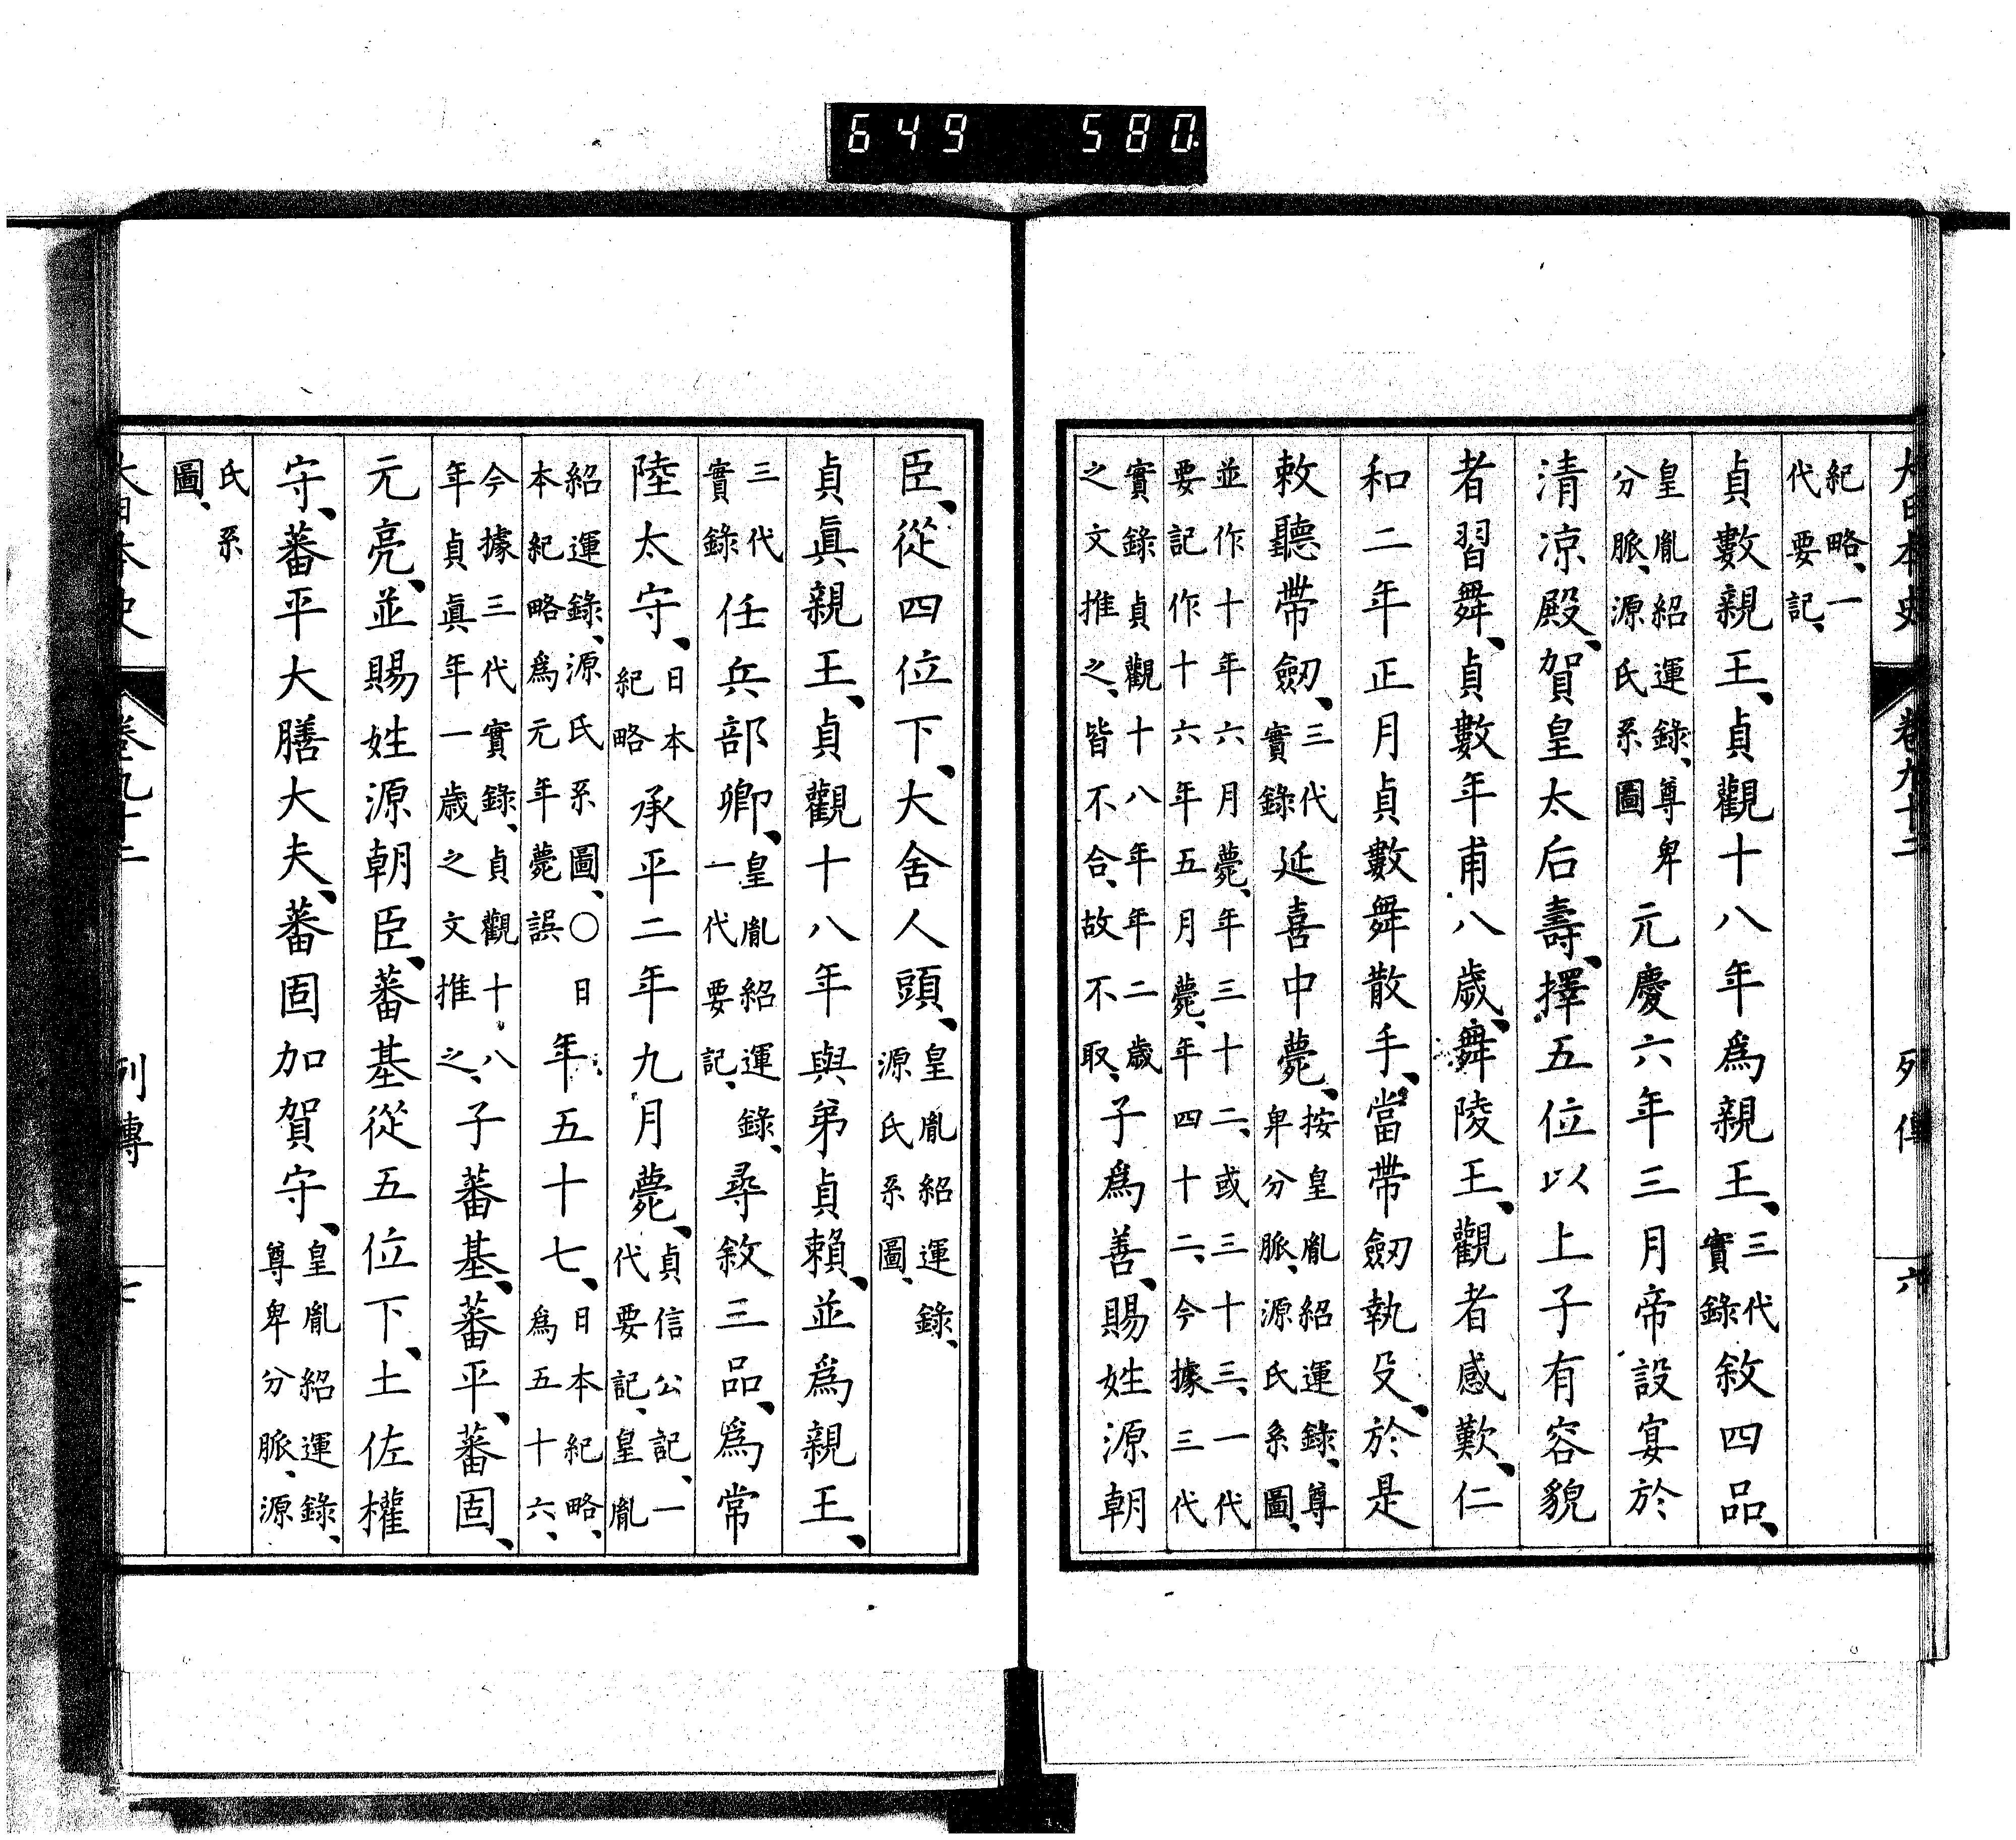 649 580
大日本史 卷九十二 列傳 六
紀略、一代要記、
貞數親王、貞觀十八年爲親王、三代實錄敘四品、
皇胤紹運錄、尊卑分脈、源氏系圖元慶六年三月帝設宴於
清凉殿、賀皇太后壽、擇五位以上子有容貌
者習舞、貞數年甫八歳、舞陵王、觀者感歎、仁
和二年正月貞數舞散手、當帶劒執殳、於是
敕聽帶劒、三代實錄延喜中薨、按皇胤紹運錄、尊卑分脈、源氏系圖、
並作十年六月薨、年三十二、或三十三、一代要記作十六年五月薨、年四十二、今據三代
實錄貞觀十八年年二歳之文推之、皆不合、故不取、子爲善、賜姓源朝
臣、從四位下、大舍人頭、皇胤紹運錄、源氏系圖、
貞眞親王、貞觀十八年與弟貞賴、並爲親王、
三代實錄任兵部卿、皇胤紹運錄、一代要記、尋敘三品、爲常
陸太守、日本紀略承平二年九月薨、貞信公記、一代要記、皇胤
紹運錄、源氏系圖、○日本紀略爲元年薨誤年五十七、日本紀略、爲五十六、
今據三代實錄、貞觀十八年貞眞年一歳之文推之、子蕃基、蕃平、蕃固、
元亮、並賜姓源朝臣、蕃基從五位下、土佐權
守、蕃平大膳大夫、蕃固加賀守、皇胤紹運錄、尊卑分脈、源
氏系圖、
大日本史 卷九十二 列傳 七